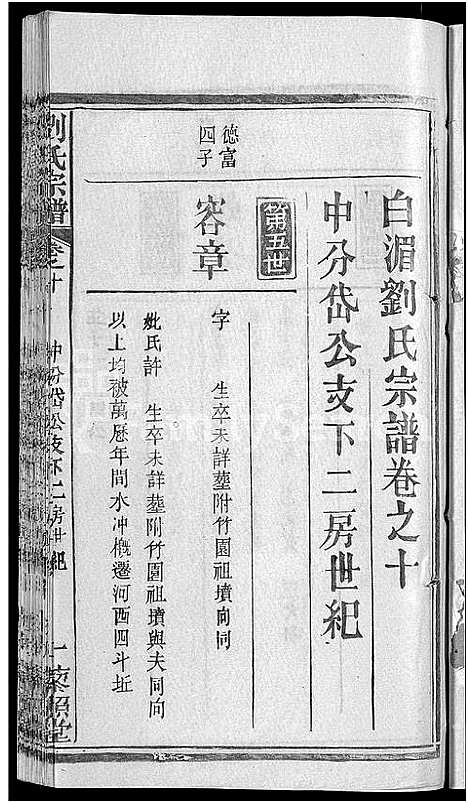 白湄劉氏宗譜卷之十
中分岱公支下二房世紀
第五世
德富
四子
容章
字　生卒未詳塟附竹園祖墳向同
妣氏許　生卒未詳塟附竹園祖墳與夫同向
以上均被萬厯年間水冲概遷河西四斗坵
劉氏宗譜
卷之十
中分岱公支下二房世紀
一
藜照堂